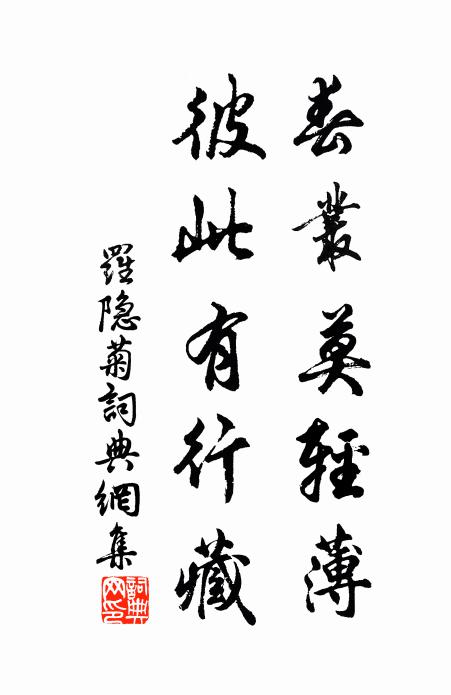 春叢莫輕薄
彼此有行藏
羅隐菊詞典網集
詞典
网印